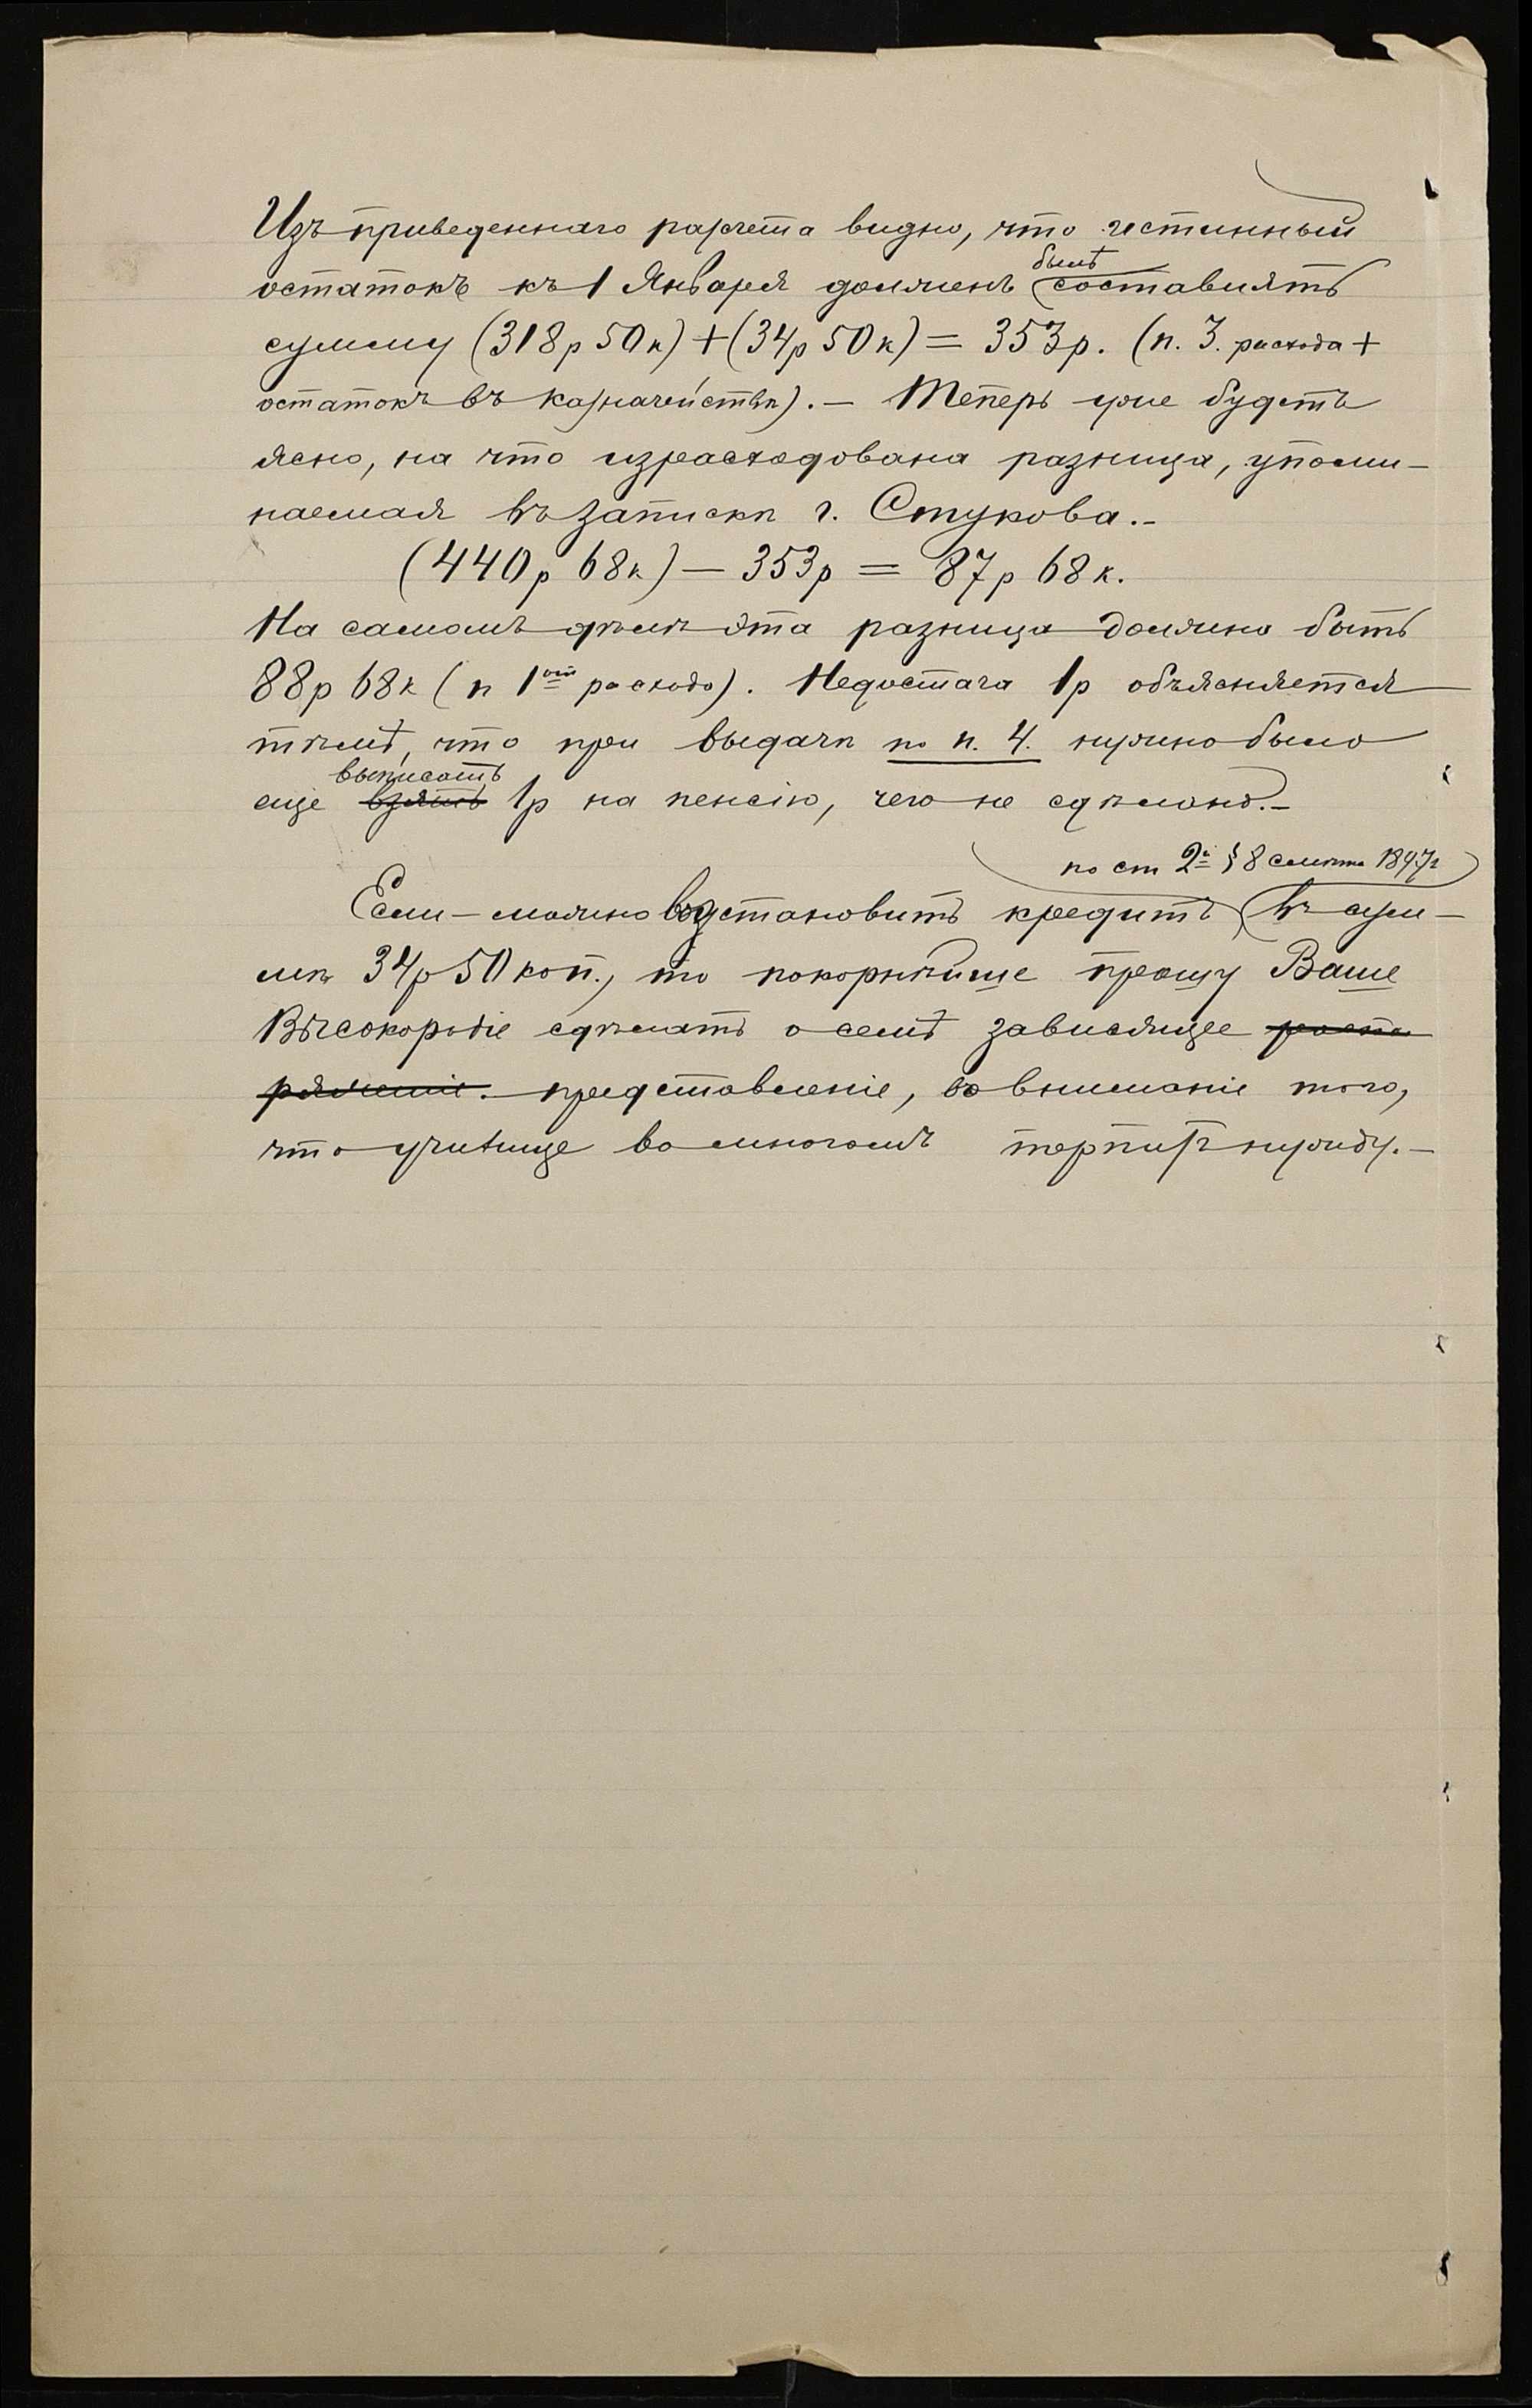 Изъ приведеннаго расчета видно, что истинный
былъ
остатокъ къ 1 Января долженъ составлять
сумму (318р 50к) + (34р 50к) = 353р. (п. 3. расхода +
остатокъ въ казначействѣ). — Теперь уже будетъ
ясно, на что израсходована разница, упоми-
наемая въ запискѣ г. Стукова. —
(440р 68к) — 353р = 87р 68к.
На самомъ дѣлѣ эта разница должна быть
88р 68к (п 1ый расхода). Недостача 1р объясняется
тѣмъ, что при выдачѣ по п. 4. нужно было
выписать
еще взять 1р на пенсію, чего не сдѣлано. —
по ст 2й § 8 смѣты 1897г
Если можно возстановить кредитъ въ сум-
мѣ 34р 50 коп., то покорнѣйше прошу Ваше
Высокородіе сдѣлать о семъ зависящее распо
ряженіе. представленіе, во вниманіе того,
что училище во многомъ терпитъ нужду. —